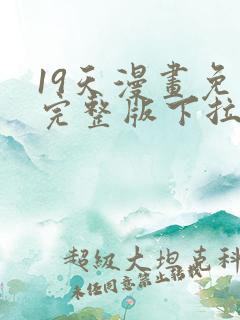 19天漫畫免
完整版下拉
超級大坦克科
未經同意禁止轉載